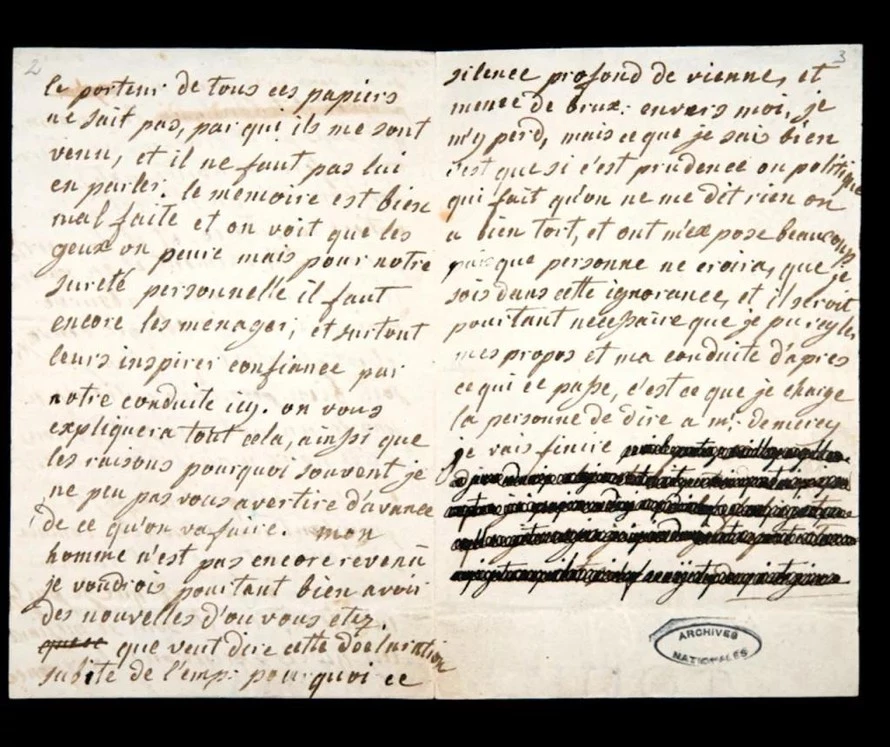 2
le porteur de tous ces papiers
ne sait pas, par qui ils me sont
venu, et il ne faut pas lui
en parler. le mémoire est bien
mal faite et on voit que les
geux on peure mais pour notre
sureté personnelle il faut
encore les menager, et surtout
leurs inspirer confiance par
notre conduite icy. on vous
expliquera tout cela, ainssi que
les raisons pourquoi souvent je
ne peu pas vous avertire d'avance
de ce qu'on va faire. mon
homme n'est pas encore revenü
je voudrois pourtant bien avoir
des nouvelles d'ou vous etez.
que veut dire cette déclaration
subite de l'emp: pourquoi ce
3
silence profond de vienne, et
meme de brux: envers moi, je
m'y perd, mais ce que je sais bien
c'est que si c'est prudence ou politique
qui fait qu'on ne me dit rien on
a bien tort, et ont m'expose beaucoup
puisque personne ne croira, que je
sois dans cette ignorance, et il seroit
pourtant necessaire que je puregler
mes propos et ma conduite d'apres
ce qui ce passe, c'est ce que je charge
la personne de dire a mr: de mercy
je vais finire
ARCHIVES
NATIONALES